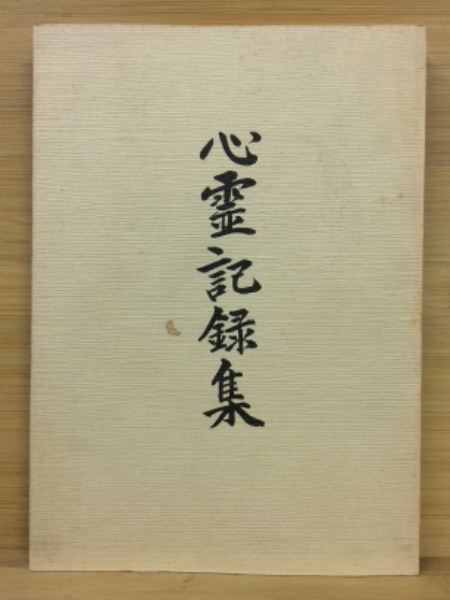 心霊記録集